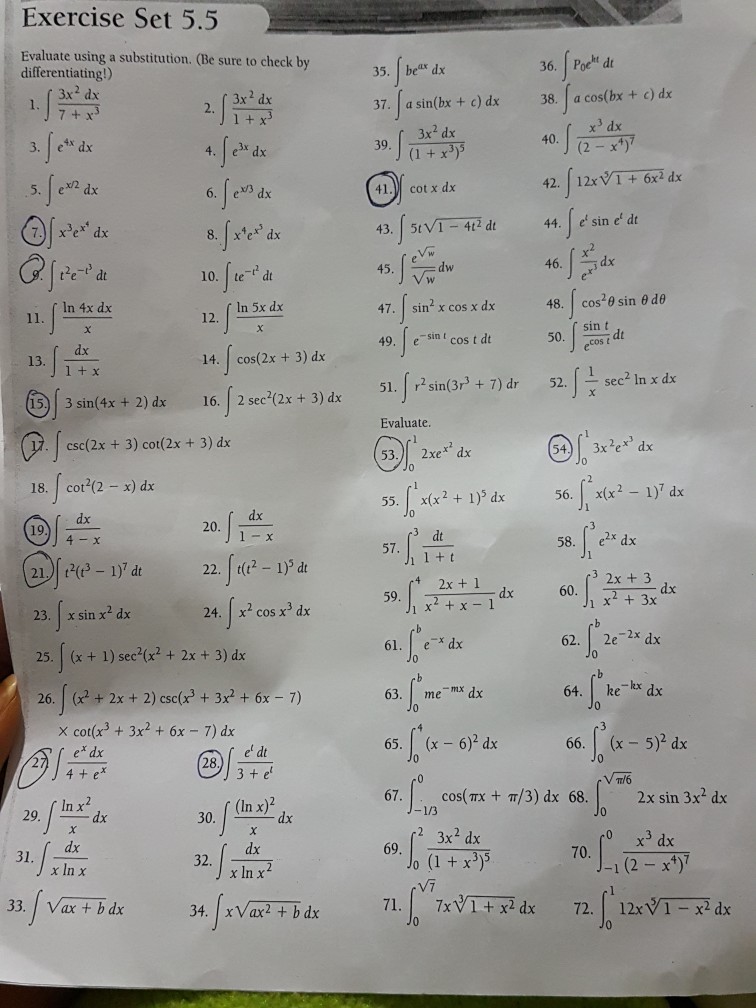 Exercise Set 5.5
Evaluate using a substitution. (Be sure to check by
differentiating!)
1. ∫ 3x² dx / (7 + x³)
2. ∫ 3x² dx / (1 + x³)
3. ∫ e⁴ˣ dx
4. ∫ e³ˣ dx
5. ∫ e^(x/2) dx
6. ∫ e^(x/3) dx
7. ∫ x³e^(x⁴) dx
8. ∫ x⁴e^(x⁵) dx
9. ∫ t²e^(−t³) dt
10. ∫ te^(−t²) dt
11. ∫ ln 4x dx / x
12. ∫ ln 5x dx / x
13. ∫ dx / (1 + x)
14. ∫ cos(2x + 3) dx
15. ∫ 3 sin(4x + 2) dx
16. ∫ 2 sec²(2x + 3) dx
17. ∫ csc(2x + 3) cot(2x + 3) dx
18. ∫ cot²(2 − x) dx
19. ∫ dx / (4 − x)
20. ∫ dx / (1 − x)
21. ∫ t²(t³ − 1)⁷ dt
22. ∫ t(t² − 1)⁵ dt
23. ∫ x sin x² dx
24. ∫ x² cos x³ dx
25. ∫ (x + 1) sec²(x² + 2x + 3) dx
26. ∫ (x² + 2x + 2) csc(x³ + 3x² + 6x − 7)
× cot(x³ + 3x² + 6x − 7) dx
27. ∫ eˣ dx / (4 + eˣ)
28. ∫ eᵗ dt / (3 + eᵗ)
29. ∫ (ln x² / x) dx
30. ∫ ((ln x)² / x) dx
31. ∫ dx / (x ln x)
32. ∫ dx / (x ln x²)
33. ∫ √(ax + b) dx
34. ∫ x√(ax² + b) dx
35. ∫ beᵃˣ dx
36. ∫ P₀eᵏᵗ dt
37. ∫ a sin(bx + c) dx
38. ∫ a cos(bx + c) dx
39. ∫ 3x² dx / (1 + x³)⁵
40. ∫ x³ dx / (2 − x⁴)⁷
41. ∫ cot x dx
42. ∫ 12x ⁵√(1 + 6x²) dx
43. ∫ 5t√(1 − 4t²) dt
44. ∫ eᵗ sin eᵗ dt
45. ∫ (e^(√w) / √w) dw
46. ∫ (x² / e^(x³)) dx
47. ∫ sin² x cos x dx
48. ∫ cos²θ sin θ dθ
49. ∫ e^(−sin t) cos t dt
50. ∫ (sin t / e^(cos t)) dt
51. ∫ r² sin(3r³ + 7) dr
52. ∫ (1/x) sec² ln x dx
Evaluate.
53. ∫₀¹ 2xe^(x²) dx
54. ∫₀¹ 3x²e^(x³) dx
55. ∫₀¹ x(x² + 1)⁵ dx
56. ∫₁² x(x² − 1)⁷ dx
57. ∫₁³ dt / (1 + t)
58. ∫₁³ e²ˣ dx
59. ∫₁⁴ (2x + 1) / (x² + x − 1) dx
60. ∫₁³ (2x + 3) / (x² + 3x) dx
61. ∫₀ᵇ e⁻ˣ dx
62. ∫₀ᵇ 2e⁻²ˣ dx
63. ∫₀ᵇ me⁻ᵐˣ dx
64. ∫₀ᵇ ke⁻ᵏˣ dx
65. ∫₀⁴ (x − 6)² dx
66. ∫₀³ (x − 5)² dx
67. ∫_(−1/3)^0 cos(πx + π/3) dx
68. ∫_0^(√π/6) 2x sin 3x² dx
69. ∫₀² 3x² dx / (1 + x³)⁵
70. ∫₋₁⁰ x³ dx / (2 − x⁴)⁷
71. ∫_0^(√7) 7x ³√(1 + x²) dx
72. ∫₀¹ 12x ⁵√(1 − x²) dx